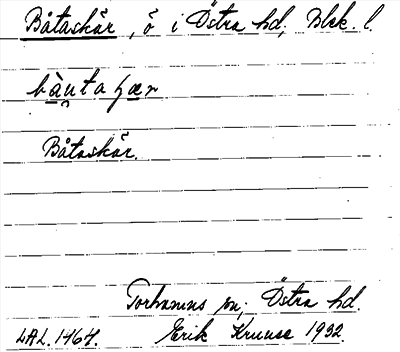 Båtaskär, ö i Östra hd, Blek. l.
bàu̯taʂær
Båtaskär.
Torhamns sn; Östra hd.
LAL.1464. Erik Kruuse 1932.